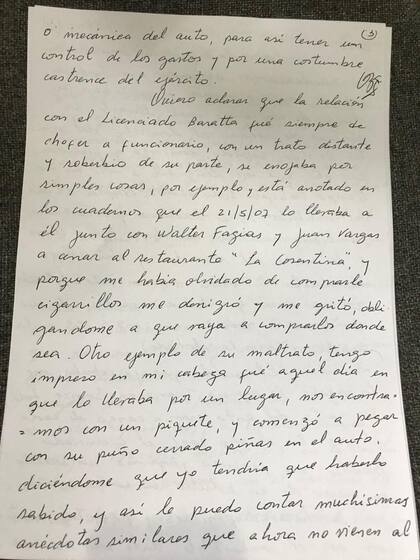 (3)
o mecánica del auto, para así tener un
control de los gastos y por una costumbre
castrence del ejército.
Quiero aclarar que la relación
con el Licenciado Baratta fué siempre de
chofer a funcionario, con un trato distante
y soberbio de su parte, se enojaba por
simples cosas, por ejemplo, y está anotado en
los cuadernos que el 21/5/07 lo llevaba a
él junto con Walter Fagias y Juan Vargas
a cenar al restaurante "La Corentina", y
porque me habia olvidado de comprarle
cigarrillos me denigró y me gritó, obli-
gandome a que vaya a comprarlos donde
sea. Otro ejemplo de su maltrato, tengo
impreso en mi cabeza qué aquel día en
que lo llevaba por un lugar, nos encontra-
=mos con un piquete, y comenzó a pegar
con su puño cerrado piñas en el auto.
diciéndome que yo tendría que haberlo
sabido, y así le puedo contar muchísimas
anécdotas similares que ahora no vienen al